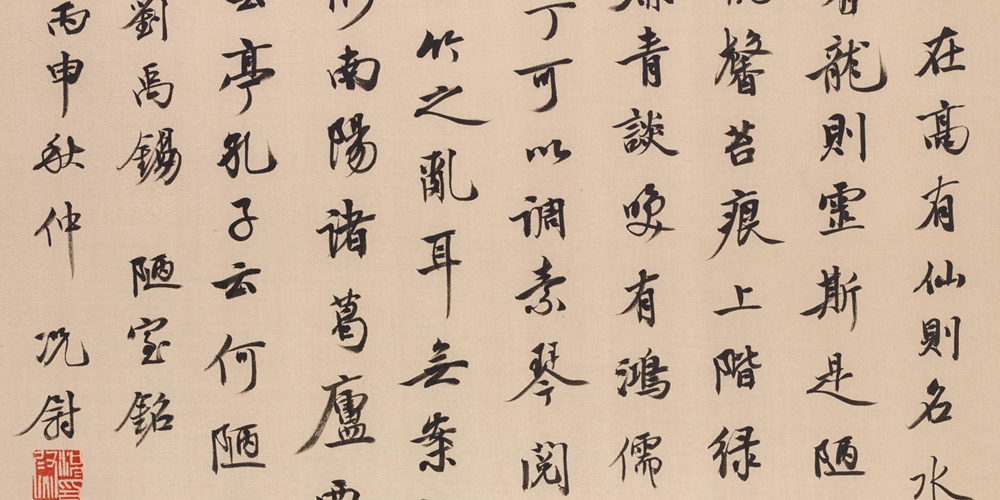 在高有仙則名水
龍則靈斯是陋
馨苔痕上階緑
青談咲有鴻儒
丁可以调素琴閲
竹之亂耳無案
南陽諸葛廬西
云亭孔子云何陋
劉禹錫 陋室銘
丙申秋仲 况尉